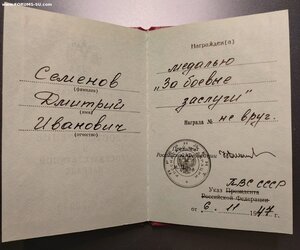 www.FORUMS-SU.com
Семенов
(фамилия)
Дмитрий
(имя)
Иванович
(отчество)
Награжден(а)
медалью
"За боевые
заслуги"
Награда № не вруч.
Президент
Российской Федерации
ПВС СССР
Указ Президента
Российской Федерации
от 6. 11 1947